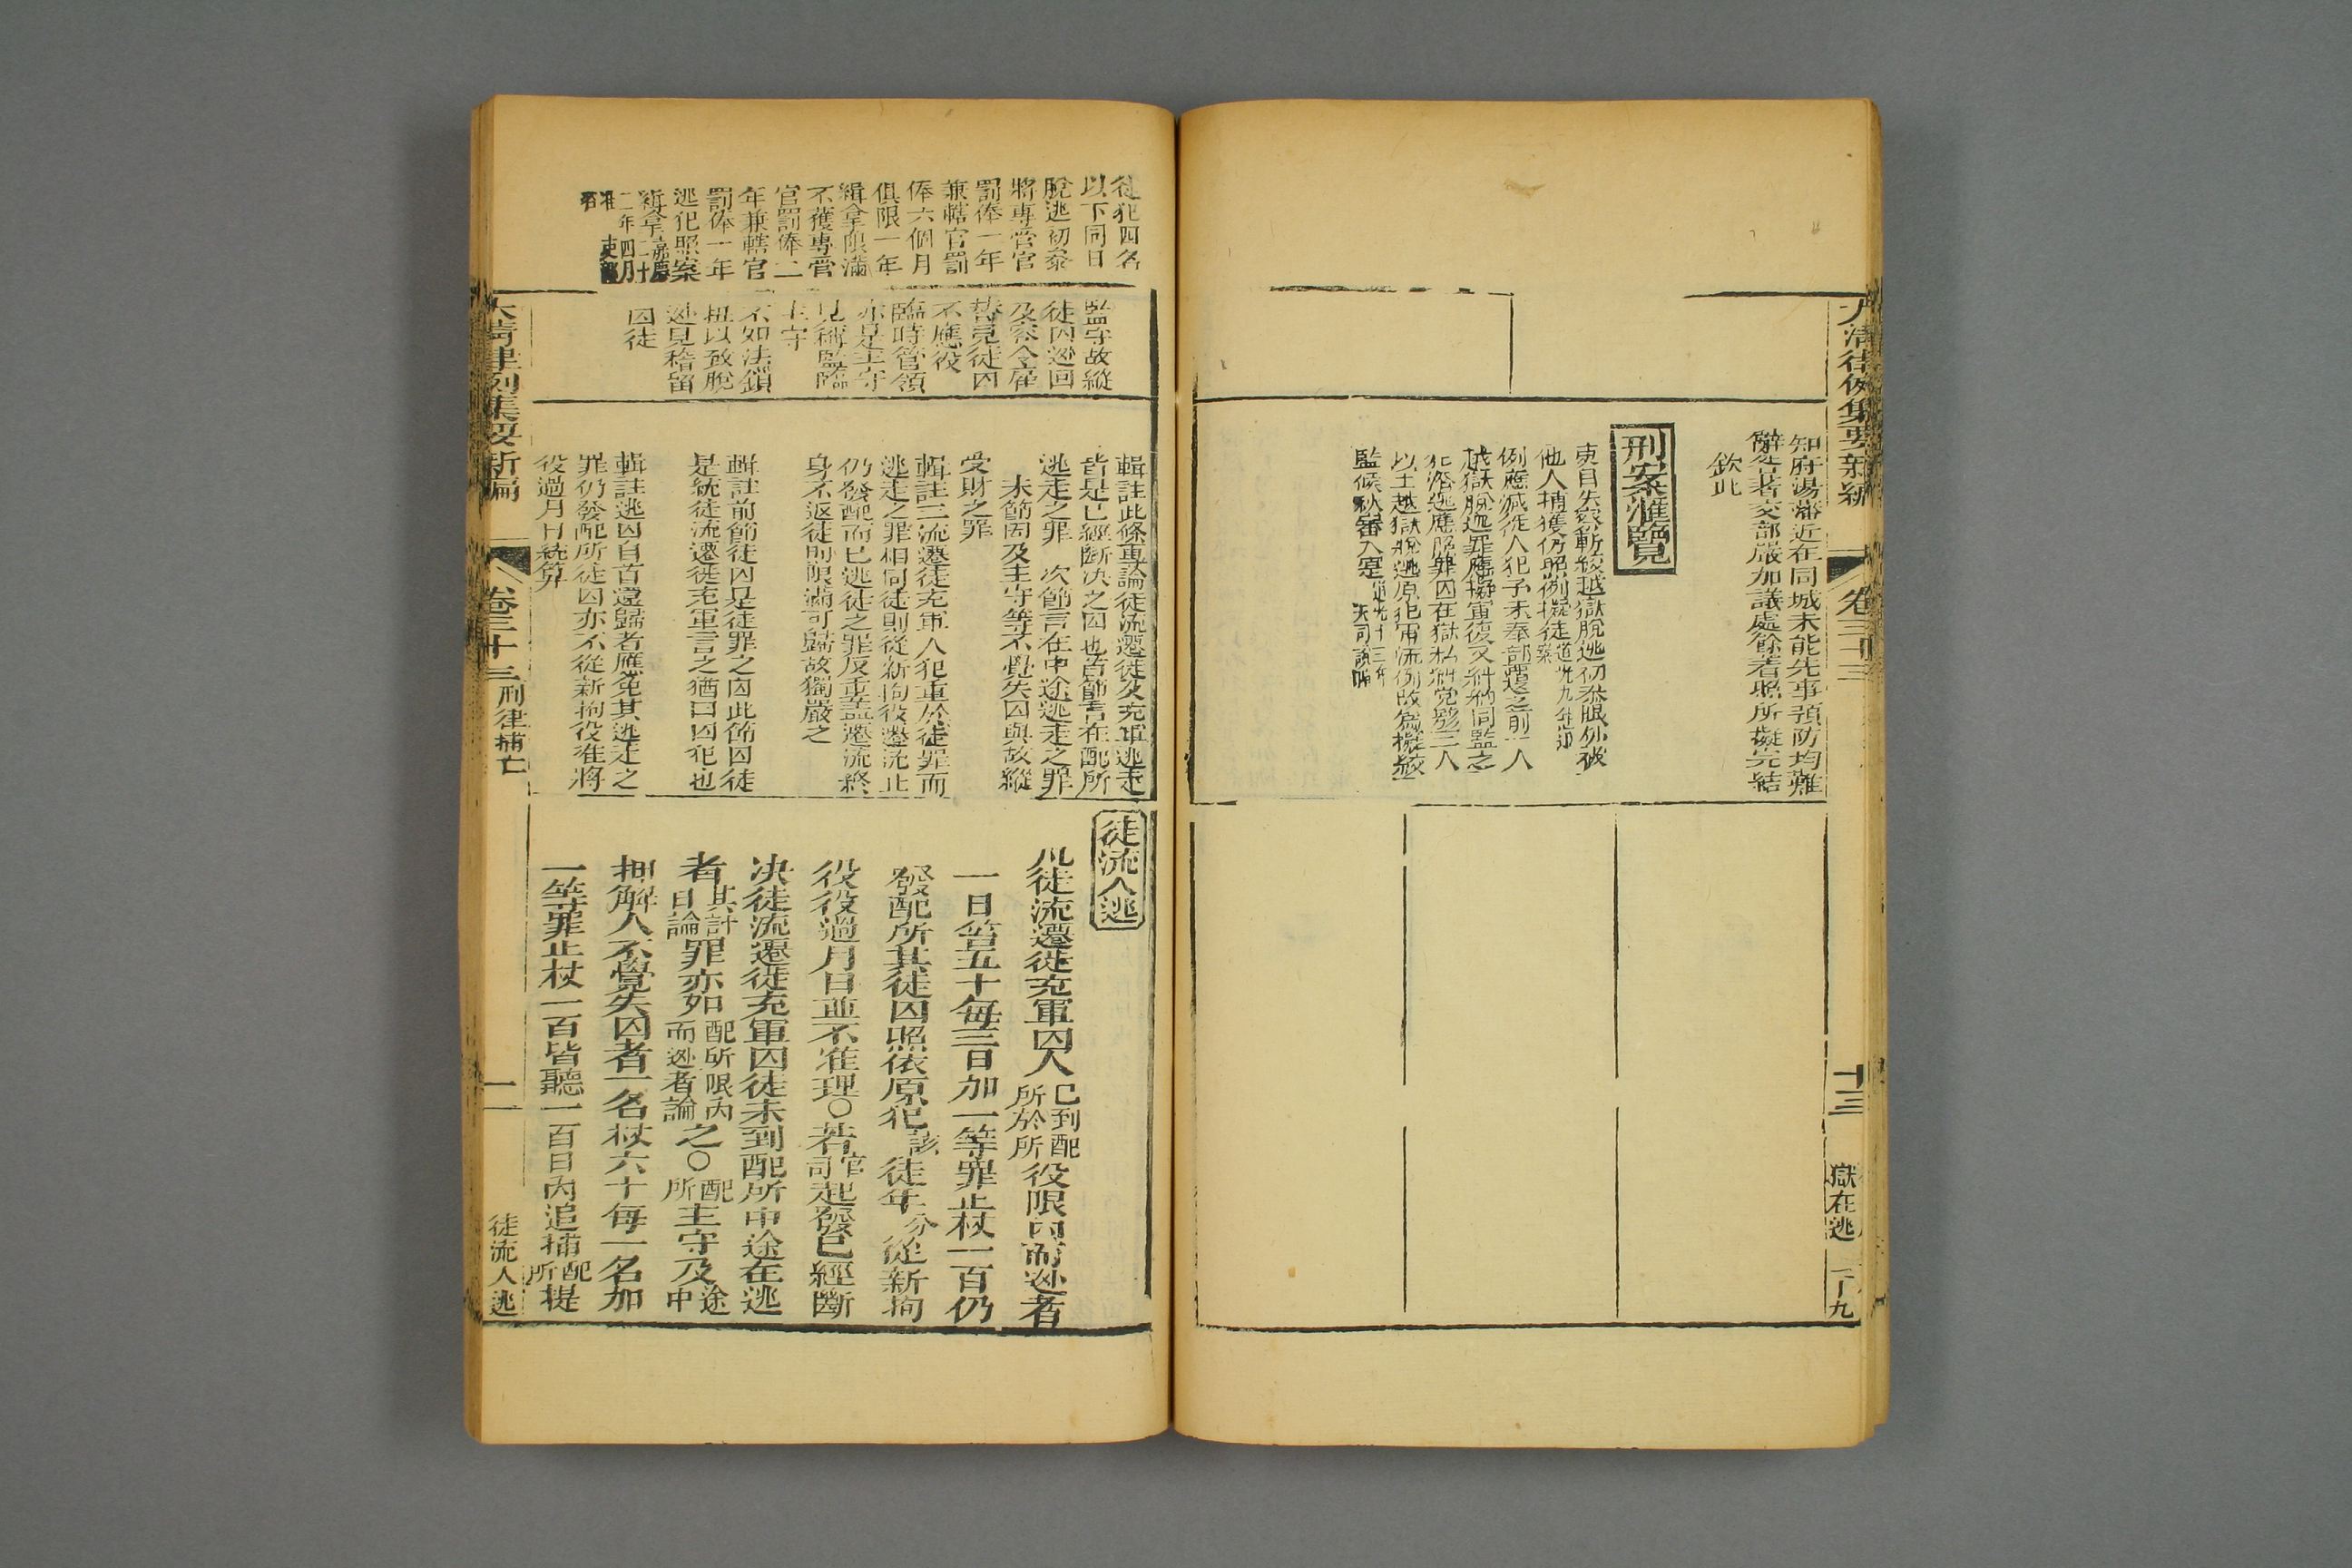 大清律例集要新編
卷三十三
十三
獄在逃
知府湯藩近在同城未能先事預防均難
辭咎著交部嚴加議處餘著照所擬完結
欽此
刑案滙覽
吏目失察斬絞越獄脫逃初叅限外被
他人捕獲仍照例擬徒 道光九年
例應減徒人犯于未奉部覆之前一人
越獄脫逃罪應擬軍復又糾約同監之
犯潛逃應照罪囚在獄私糾黨夥三人
以上越獄脫逃原犯軍流例改爲擬絞
監候秋審入 十三年
徒犯四名
以下同日
脫逃初叅
將專管官
罰俸一年
兼轄官罰
俸六個月
俱限一年
緝拿限滿
不獲專管
官罰俸一
年兼轄官
罰俸一年
逃犯照案
緝拿 嘉慶二十
二年四月
吏部
監守故縱
徒囚逃回
及容令雇
替冐徒囚
不應役
臨時管領
亦是主守
見稱監臨
主守
不如法鎖
杻以致脫
逃見稽留
囚徒
輯註此條專論徒流遷徙及充軍逃走
皆是已經斷决之囚也首節言在配所
逃走之罪 次節言在中途逃走之罪
末節因及主守等不覺失囚與故縱
受財之罪
輯註三流遷徙充軍人犯重於徒罪而
逃走之罪相同徒則從新拘役遷流止
仍發配而已逃徒之罪反重盖遷流終
身不返徒則限滿可歸故獨嚴之
輯註前節徒囚是徒罪之囚此節囚徒
是統徒流遷徙充軍言之猶曰囚犯也
輯註逃囚自首還歸者應免其逃走之
罪仍發配所徒囚亦不從新拘役准將
役過月日統算
徒流人逃
凡徒流遷徙充軍囚人 已到配所於所 役限內而逃者
一日笞五十每三日加一等罪止杖一百仍
發配所其徒囚照依原犯 該 徒年 分 從新拘
役役過月日並不准理○若 官司 起發已經斷
决徒流遷徙充軍囚徒未到配所中途在逃
者 其計日論 罪亦如 配所限內而逃者論 之○ 配所 主守及 途中
押解人不覺失囚者一名杖六十每一名加
一等罪止杖一百皆聽一百日內追捕 配所 提
大清律例集要新編
卷三十三 刑律捕亡
一
徒流人逃